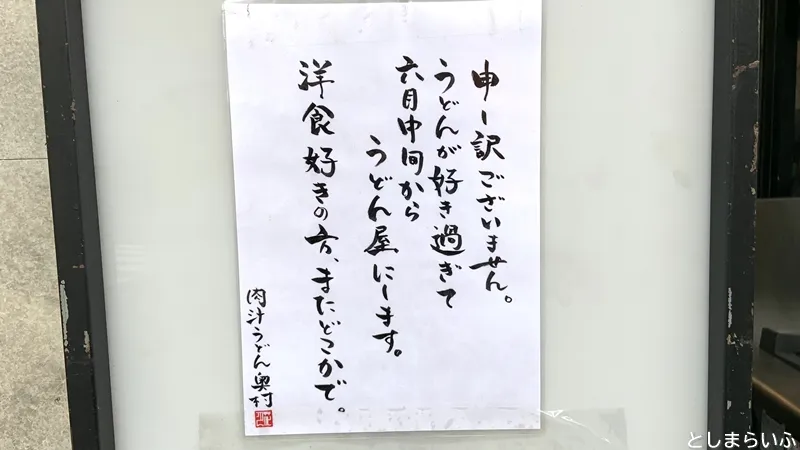 申し訳ございません。
うどんが好き過ぎて
六月中旬から
うどん屋にします。
洋食好きの方、またどこかで。
肉汁うどん奥村
としまらいふ